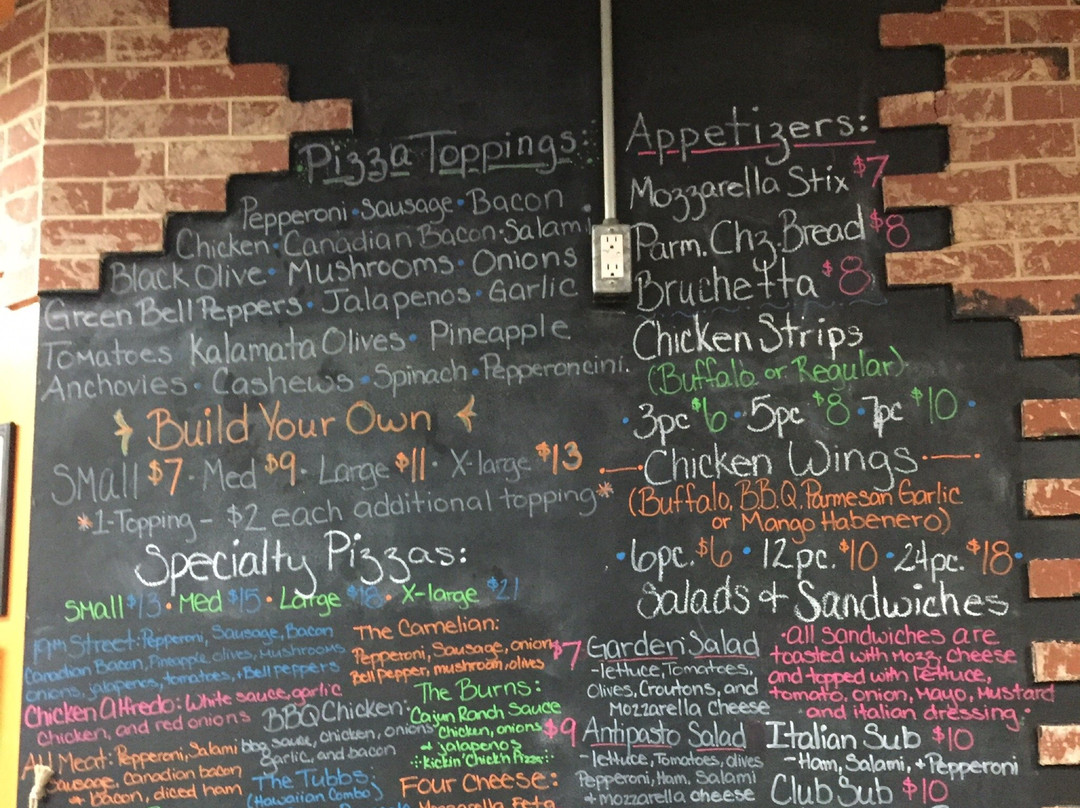 Pizza Toppings:
Pepperoni • Sausage • Bacon
Chicken • Canadian Bacon • Salami
Black Olive • Mushrooms • Onions
Green Bell Peppers • Jalapenos • Garlic
Tomatoes Kalamata Olives • Pineapple
Anchovies • Cashews • Spinach • Pepperoncini.
Build Your Own
Small $7 • Med $9 • Large $11 • X-large $13
*1-Topping - $2 each additional topping*
Specialty Pizzas:
Small $13 • Med $15 • Large $18 • X-large $21
19th Street: Pepperoni, Sausage, Bacon
Canadian Bacon, Pineapple, olives, Mushrooms
onions, jalapenos, tomatoes, + Bell peppers
Chicken Alfredo: White sauce, garlic
Chicken, and red onions
All Meat: Pepperoni, Salami
Sausage, Canadian bacon
+ bacon, diced ham
BBQ Chicken:
bbq sauce, chicken, onions
garlic, and bacon
The Tubbs:
(Hawaiian Combo)
The Camelian:
Pepperoni, Sausage, onions
Bell Pepper, mushroom, olives
The Burns:
Cajun Ranch Sauce
Chicken, onions
+ jalapenos
kickin' Chick'n Pizza
Four Cheese:
Mozzarella, Feta
Appetizers:
Mozzarella Stix $7
Parm. Chz. Bread $8
Bruchetta $8
Chicken Strips
(Buffalo or Regular)
• 3pc $6 • 5pc $8 • 7pc $10 •
Chicken Wings
(Buffalo, B.B.Q, Parmesan Garlic
or Mango Habenero)
• 6pc. $6 • 12pc. $10 • 24pc. $18 •
Salads & Sandwiches
$7 Garden Salad
-lettuce, Tomatoes,
Olives, Croutons, and
Mozzarella Cheese
$9 Antipasto Salad
-lettuce, Tomatoes, olives
Pepperoni, Ham, Salami
+ mozzarella cheese
• All sandwiches are
toasted with Mozz, cheese
and topped with lettuce,
tomato, onion, Mayo, Mustard
and italian dressing •
Italian Sub $10
-Ham, Salami, + Pepperoni
Club Sub $10